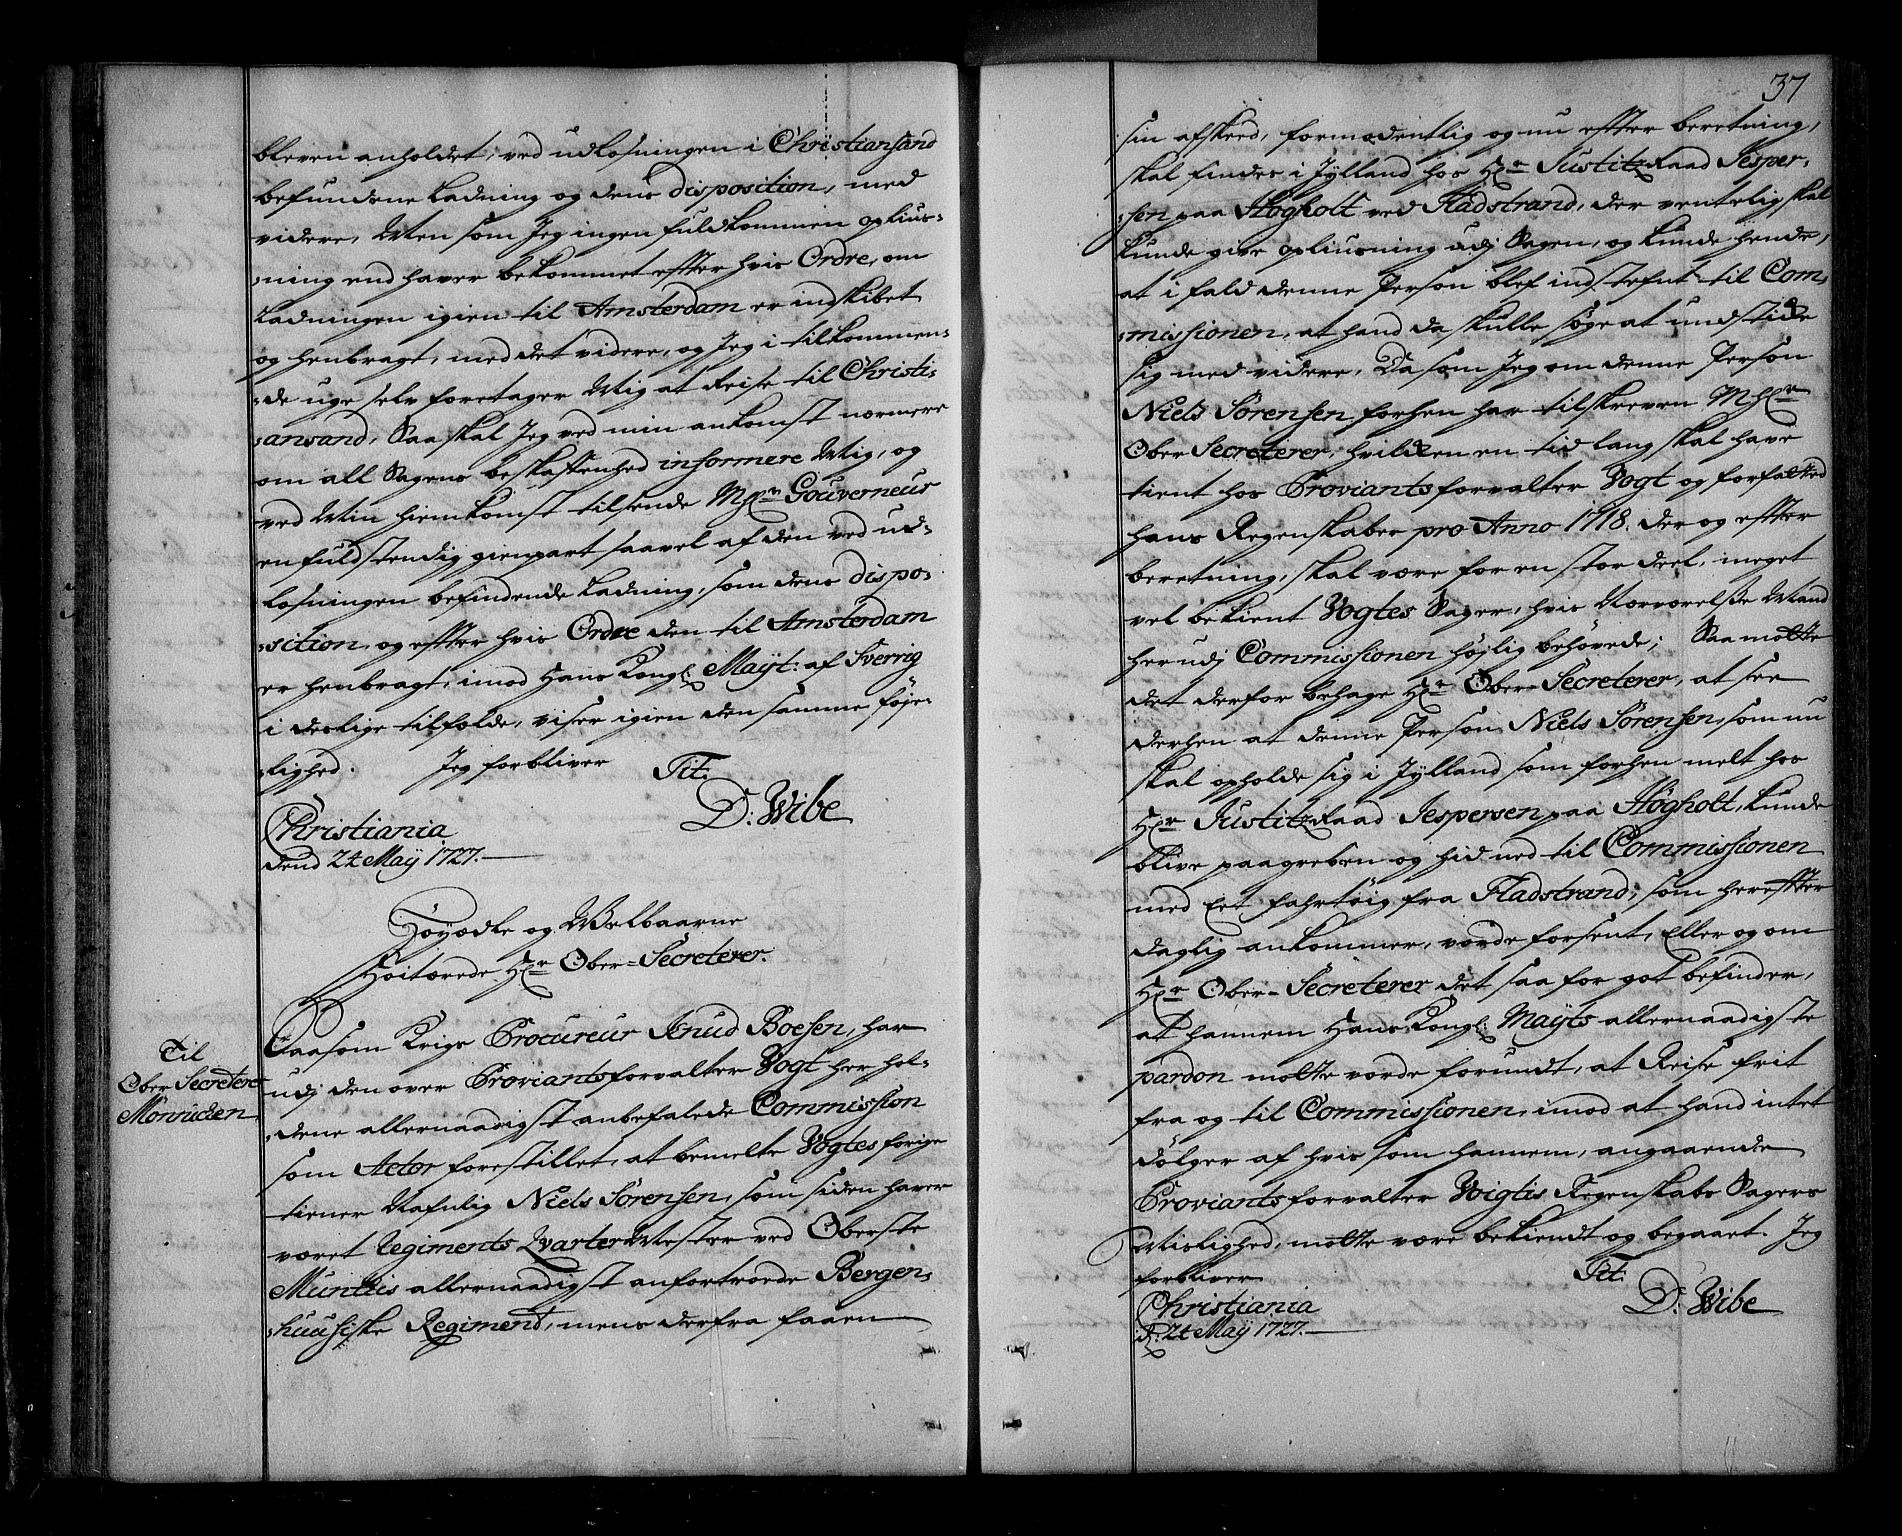 bleven anholdet, ved udlosningen i Christiansand
befundene Ladning og dens disposition, med
videre, Men som Jeg ingen fuldkommen oplius-
:ning end haver bekommet efter hvis Ordre, om
Ladningen igien til Amsterdam er indskibet
og henbragt, med det videre, og Jeg i tilkommen-
:de uge selv foretager Mig at Reise til Christi-
:ansand, Saa skal Jeg ved min ankomst nærmere
om all Sagens beskaffenhed informere Mig, og
ved Min hiemkomst tilsende MHr Gouverneur
en fuldstendig gienpart saavel af den ved ud-
losningen befindende Ladning, som dens dispo-
:sition, og efter hvis Ordre den til Amsterdam
er henbragt, imod Hans Kongl: Mayt: af Sverrig
i deslige tilfelde, viser igien den samme føje-
:lighed. Jeg forbliver Tit:
D: Wibe
Christiania
dend 24 May 1727.
Høyædle og Welbaarne
Høitærede Hr Ober-Secreterer.
Til
Ober Secreterer
Mörviden
Saasom Krigs Procureur Knud Boesen, har
udj den over Proviantsforvalter Vogt her hol-
:dene allernaadigst anbefalede Commission
som Actor forestillet, at bemelte Vogtes forige
tiener Nafnlig Niels Sörensen, som siden haver
været Regiments QvarterMester ved Oberste
Müntzis allernaadigst anfortroede Bergen-
:huusiske Regiment, mens derfra faaen
37
sin afskeed, formodentlig og nu efter beretning,
skal findes i Jylland hos Hr JustitzRaad Jesper-
:sen paa Høgholt ved Fladstrand, der ventelig skal
kunde give opliusning udj Sagen, og kunde hende,
at i fald denne Person blef indstefnt til Com-
:missionen, at hand da skulle søge at undstikke
sig med videre, Da som Jeg om denne Person
Niels Sörensen forhen har tilskreven MHr
Ober Secreterer, hvilken en tid lang skal have
tient hos Proviantsforvalter Vogt og forfatted
hans Regenskaber pro Anno 1718. der og efter
beretning, skal være for en stor deel, meget
vel bekient Vogtes Sager, hvis Nærværelse Mand
herudj Commissionen højlig behövede; Saa motte
det derfor behage Hr Ober-Secreterer, at see
derhen at denne Person Niels Sörensen, som nu
skal opholde sig i Jylland som forhen melt hos
Hr JustitzRaad Jespersen paa Høgholt, kunde
blive paagreben og hid ned til Commissionen
med Eet fahrtöig fra Fladstrand, som herefter
daglig ankommer, vorde forsent, Eller og om
Hr Ober-Secreterer det saa for got befinder,
at hannem Hans Kongl: Mayts allernaadigste
pardon motte vorde forundt, at Reise frit
fra og til Commissionen, imod at hand intet
dölger af hvis som hannem, angaaende
Proviantsforvalter Voigtis Regenskabs Sagers
Mislighed, motte være bekiendt og begaaet. Jeg
forbliver Tit:
Christiania D: Wibe
d: 24 May 1727.